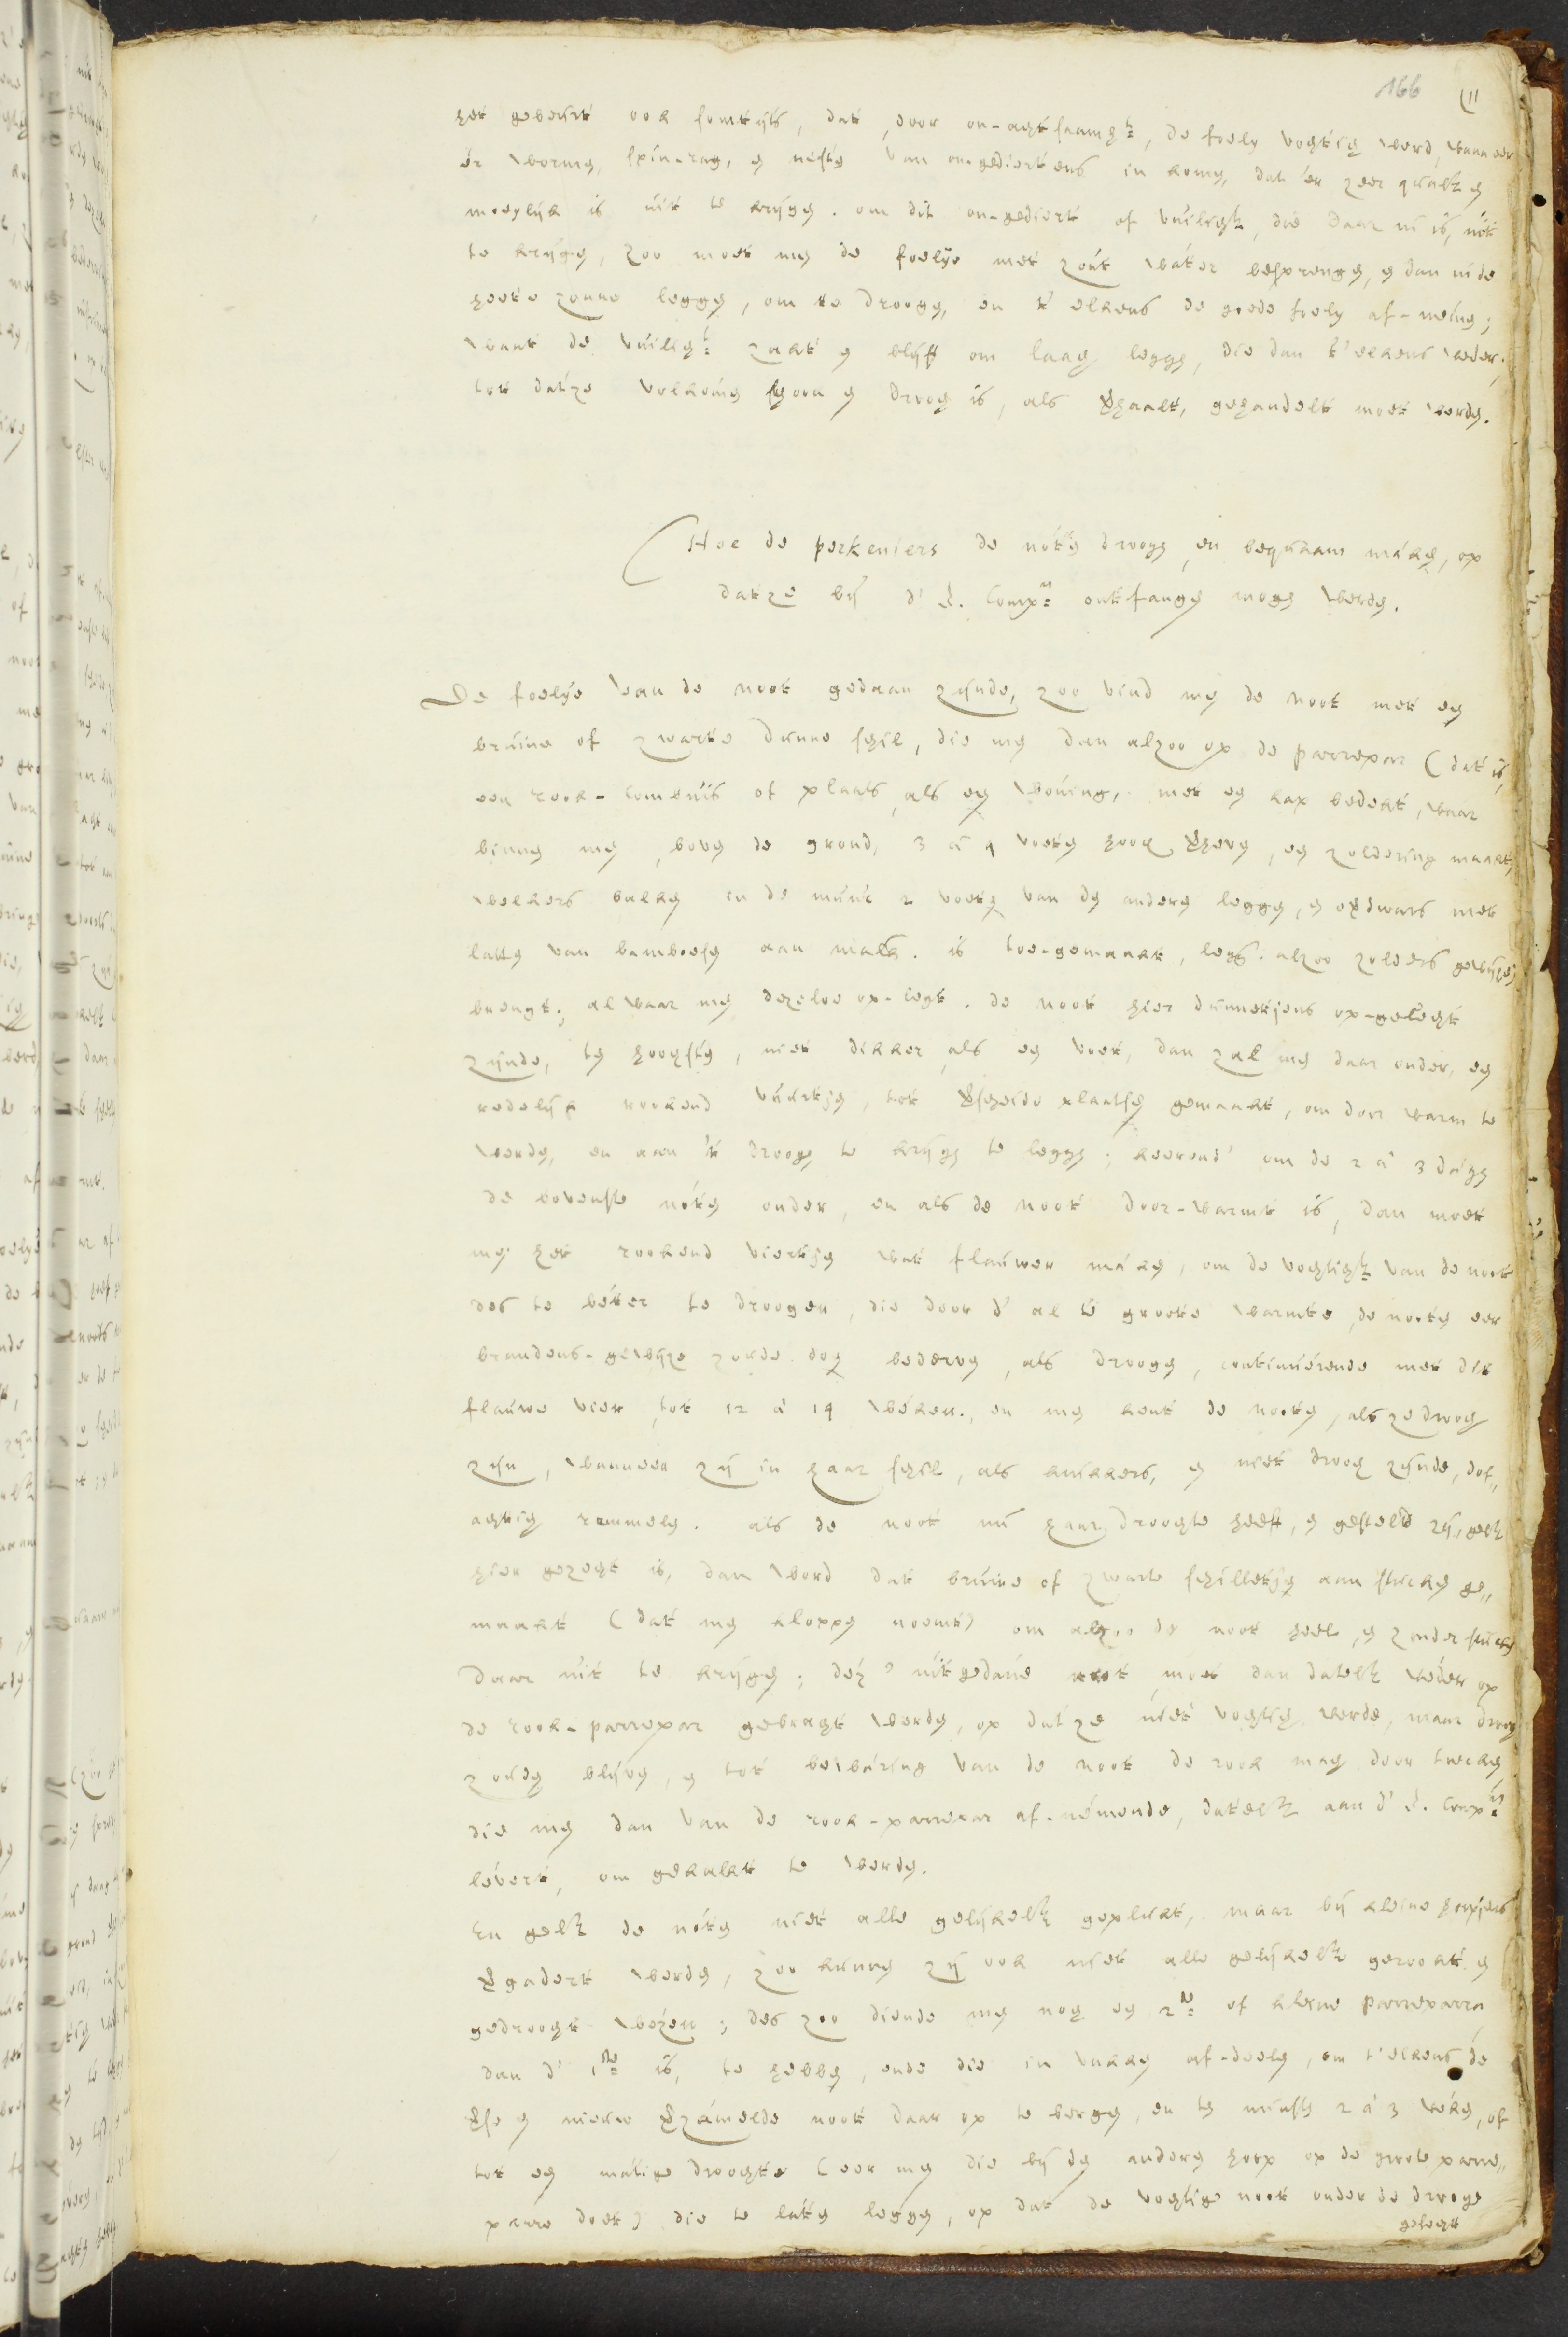 166 (11
het gebeurt ook somtijts, dat, door on-agtsaamht:, de foely vogtig werd, wanneer
er worme, spin-rag, en nesten van ongediertens in komen, dat 'er zeer qualk en
moeylijk is uit te krijgen. om dit on-gediert of vuiligh:t, die daar in is, uit
te krijgen, zoo moet men de foelye met zout water besprengen, en dan in de
heete zonne leggen, om te droogen, en t' elkens de goede foely af-nemen;
want de vuiligh:t zakt en blijft om laag leggen, die dan t'elkens weder,
tot datze volkomen schoon en droog is, als verhaalt, gehandelt moet werden.
Hoe de perkeniers de noten droogen, en bequaam maken, op
datze bij d' E. Comp:e ontfangen mogen werden.
De foelye van de noot gedaan zijnde, zoo vind men de noot met een
bruine of zwarte dunne schil, die men dan alzoo op de parrepar (dat is,
een rook-combuis of plaats, als een woning, met een kap bedekt, waar
binnen men, boven de grond, 3 à 4 voeten hoog verheven, een zoldering maakt,
welkers balken in de muur 2 voeten van den anderen leggen, en opdwars met
latten van bamboesen aan malk. is toe-gemaakt, legg. alzoo zolders gewijze)
brengt; al waar men dezelve op-legt. de noot hier dunnetjens op-gelegt
zijnde, ten hoogsten, niet dikker, als een voet, dan zal men daar onder, een
redelijk rookend vuurtje, tot verscheide plaatsen gemaakt, om door warm te
werden, en aan 't droogen te krijgen te leggen; keerend' om de 2 à 3 dagen
de bovenste noten onder, en als de noot door-warmt is, dan moet
men het rookend viertje wat flauwer maken, om de vogtigh:t van de noot
des te beter te droogen, die door d' al te groote warmte, de nooten eer
brandens-gewijze zoude dog bederven, als droogen, continuerende met dit
flauwe vier, tot 12 à 14 weken., en men kent de nooten, als ze droog
zijn, wanneer zij in haar schil, als knikkers, en niet droog zijnde, dof„
agtig rammelen. als de noot nu haar droogte heeft, en gestelt zij, gelk
hier gezegt is, dan word dat bruine of zwarte schilletje aan stucken ge„
maakt (dat men kloppen noemt) om alzoo de noot heel, en zonder stucken
daar uit te krijgen; dez' uitgedane noot moet dan datelk weder op
de rook-parrepar gebragt werden, op dat ze niet vogtig werde, maar droog
zoude blijven, en tot bewaring van de noot de rook mag door trecken,
die men dan van de rook-parrepar af-nemende, datelk aan d' E. Comp:e
levert, om gekalkt te werden.
En gelk de noten niet alle gelijkelk geplukt, maar bij kleine hoopjens
vergadert werden, zoo kunnen zij ook niet alle gelijkelk gerookt en
gedroogt wezen; des zoo diende men nog een 2:de of kleine parreparra
dan d' 1:ste is, te hebben, ende die in vakken af-deelen, om t'elkens de
verse en nieuw verzamelde noot daar op te bergen, en ten minsten 2 à 3 weken, of
tot een matige droogte (eer men die bij den anderen hoop op de groote parre„
parre doet) die te laten leggen, op dat de vogtige noot onder de drooge
gelegt